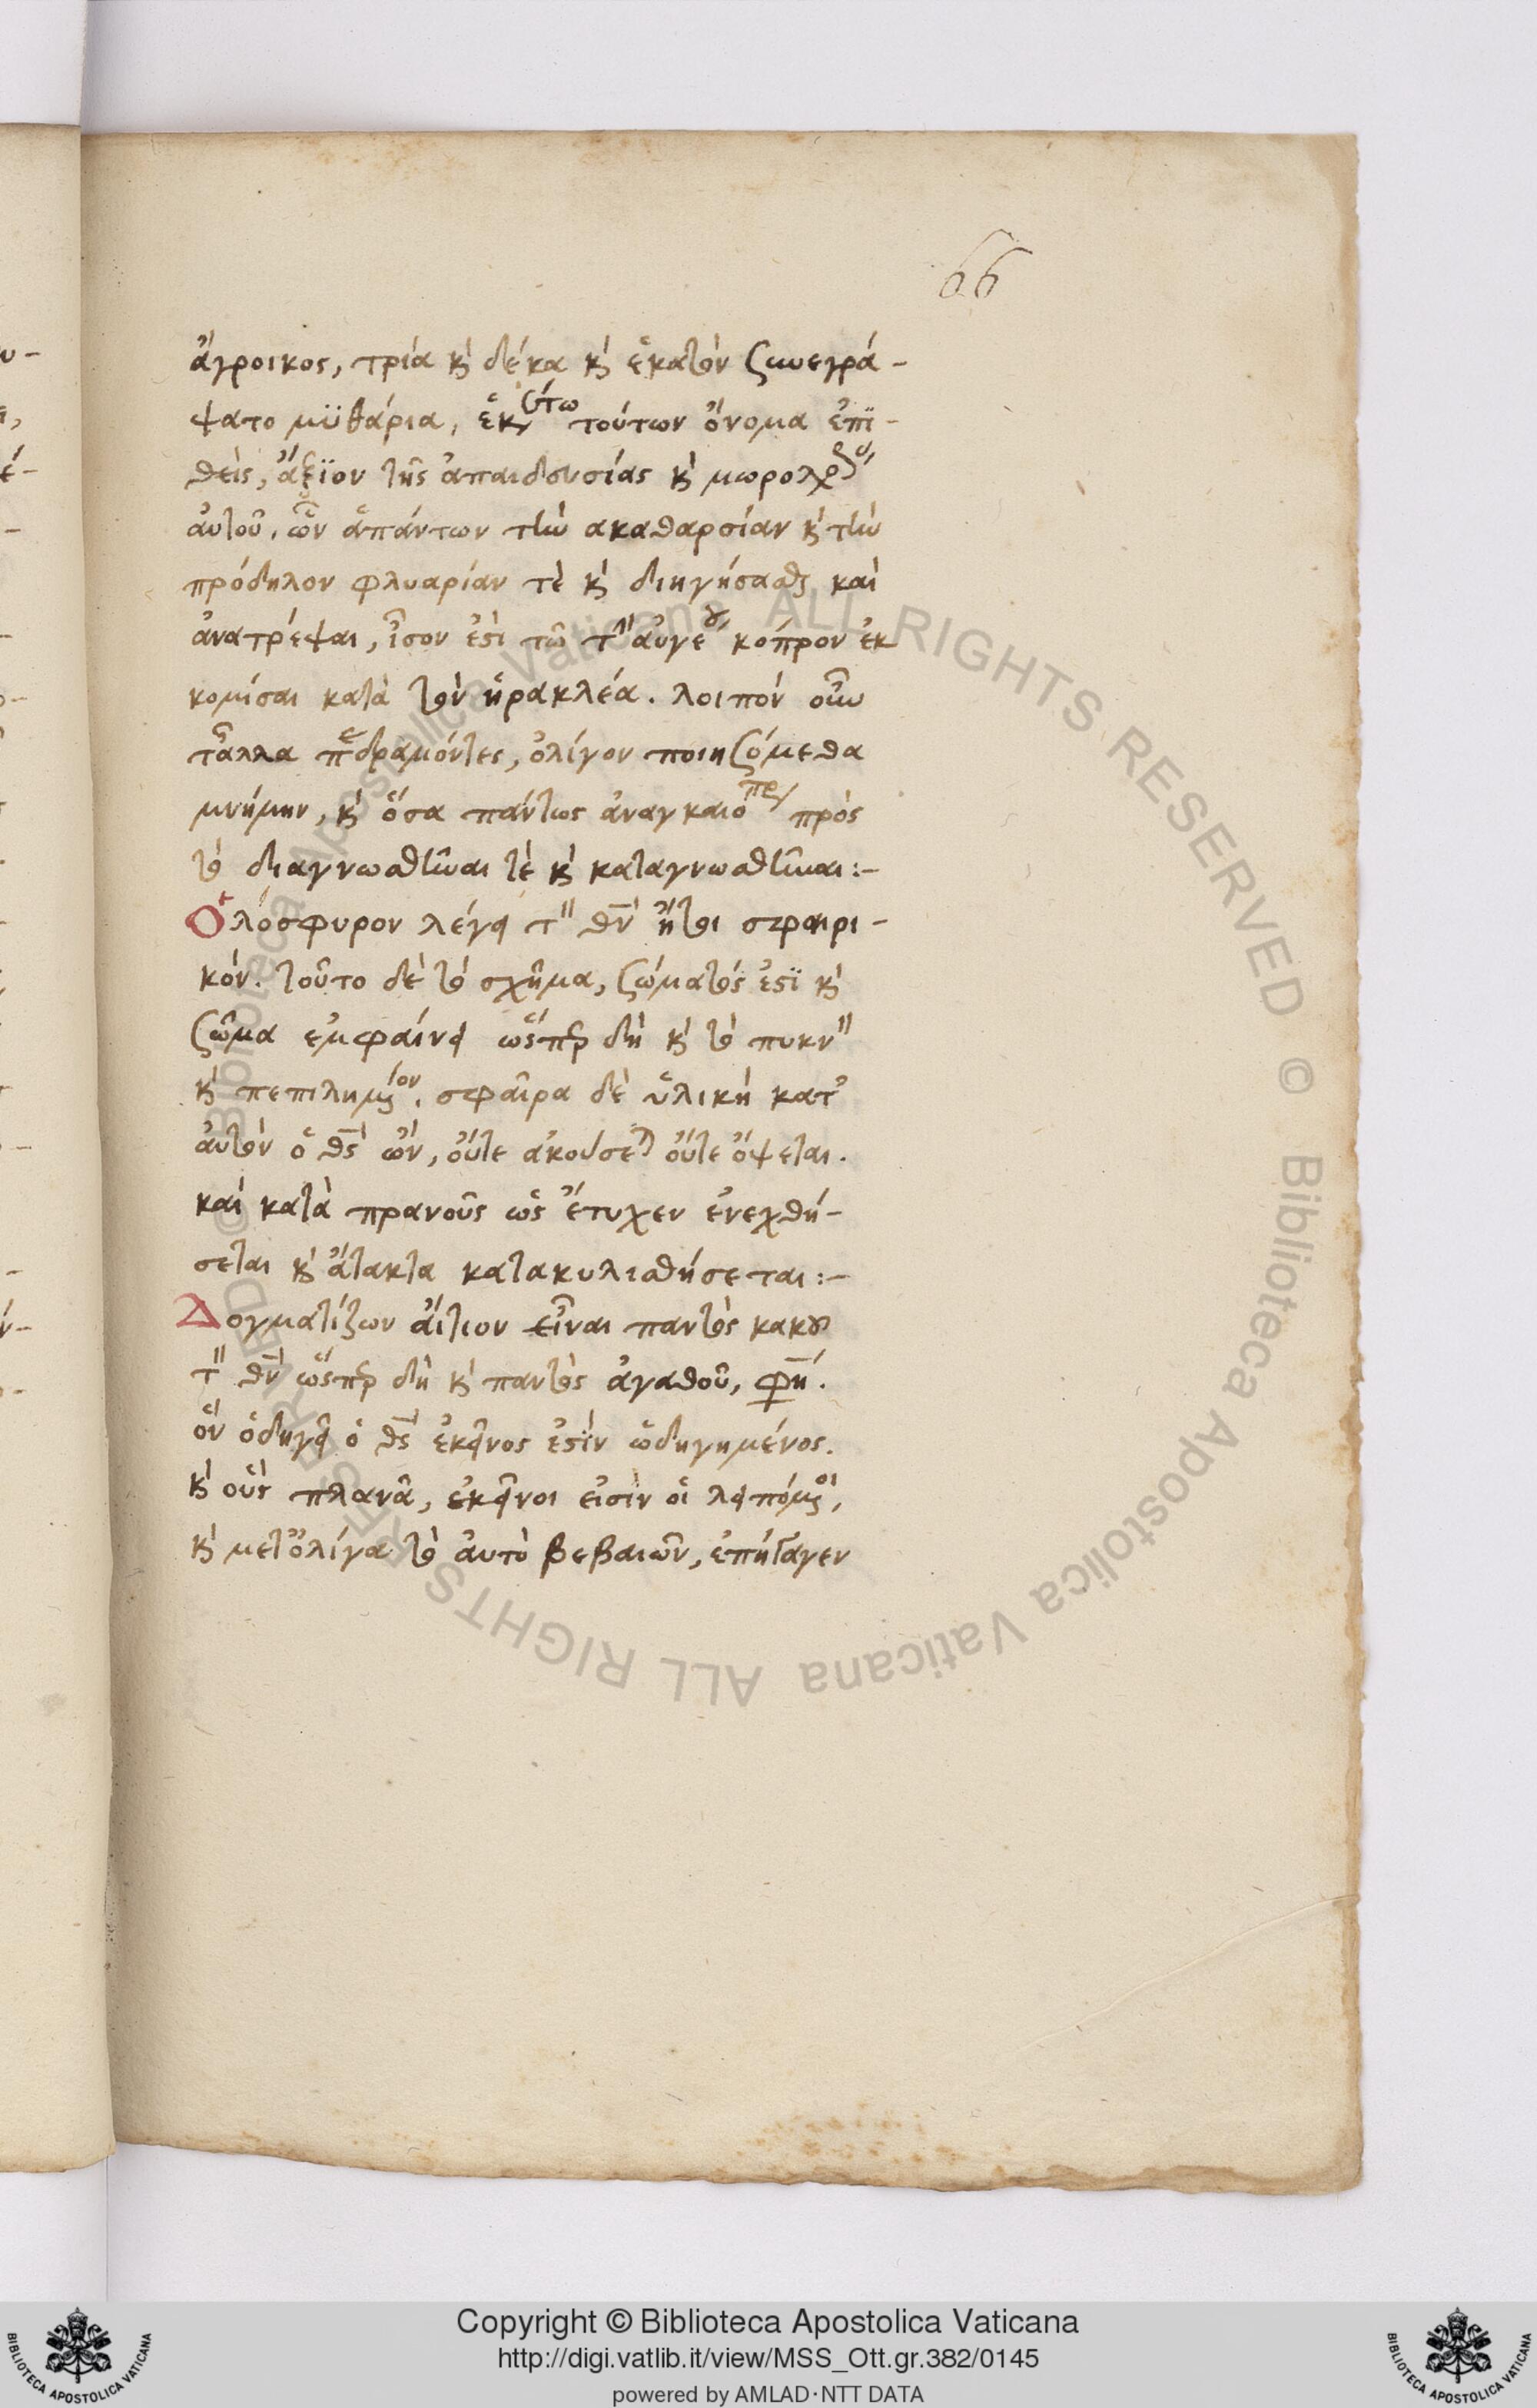 66
ἄγροικος, τρία κ̀ δέκα κ̀ ἑκατὸν συνεγρά-
ψατο μϋθάρια, ἑκάστω τούτων ὄνομα ἐπϊ-
θεὶς, ἄξϊον τῆς ἀπαιδευσίας κ̀
ἀυτοῦ. ὧν ἁπάντων τὴν ακαθαρσίαν κ̀ τὴν
πρόδηλον φλυαρίαν τὲ κ̀ διηγήσασθαι καὶ
ἀνατρέψαι, ἶσον ἐστὶ τῶ τὴν ἀυγείου κόπρον ἐκ
κομίσαι κατὰ τὸν ἡρακλέα. λοιπὸν οὖν
τἆλλα παραδραμόντες, ὀλίγον ποιησόμεθα
μνήμην, κ̀ ὅσα πάντως ἀναγκαιότερα πρὸς
τὸ διαγνωσθῆναι τὲ κ̀ καταγνωσθῆναι:-
Ὁλόσφυρον λέγει τὸν θν̅ ἤτοι σφαιρι-
κόν. τοῦτο δὲ τὸ σχῆμα, σώματός ἐστϊ κ̀
σῶμα εμφαίνει ὥσπερ δὴ κ̀ τὸ πυκνὸν
κ̀ πεπιλημένον. σφαῖρα δὲ ὑλικὴ κατ'
ἀυτὸν ὁ θς̅ ὢν, οὔτε ακούσεται οὔτε ὄψεται.
καὶ κατὰ πρανοῦς ὡς ἔτυχεν ἐνεχθή-
σεται κ̀ ἄτακτα κατακυλισθήσεται:-
Δογματίζων ἄιτιον εἶναι παντὸς κακοῦ
τὸν θν̅ ὥσπερ δὴ κ̀ παντὸς ἀγαθοῦ, φη̅.
ὃν ὁδηγεῖ ὁ θς̅ ἐκεῖνος ἐστϊν ὡδηγημένος.
κ̀ οὓς πλανᾶ, ἐκεῖνοι εἰσὶν οἱ λειπόμενοι,
κ̀ μετ' ὀλίγα τὸ ἀυτὸ βεβαιῶν, ἐπήγαγεν
Copyright © Biblioteca Apostolica Vaticana
http://digi.vatlib.it/view/MSS_Ott.gr.382/0145
powered by AMLAD·NTT DATA